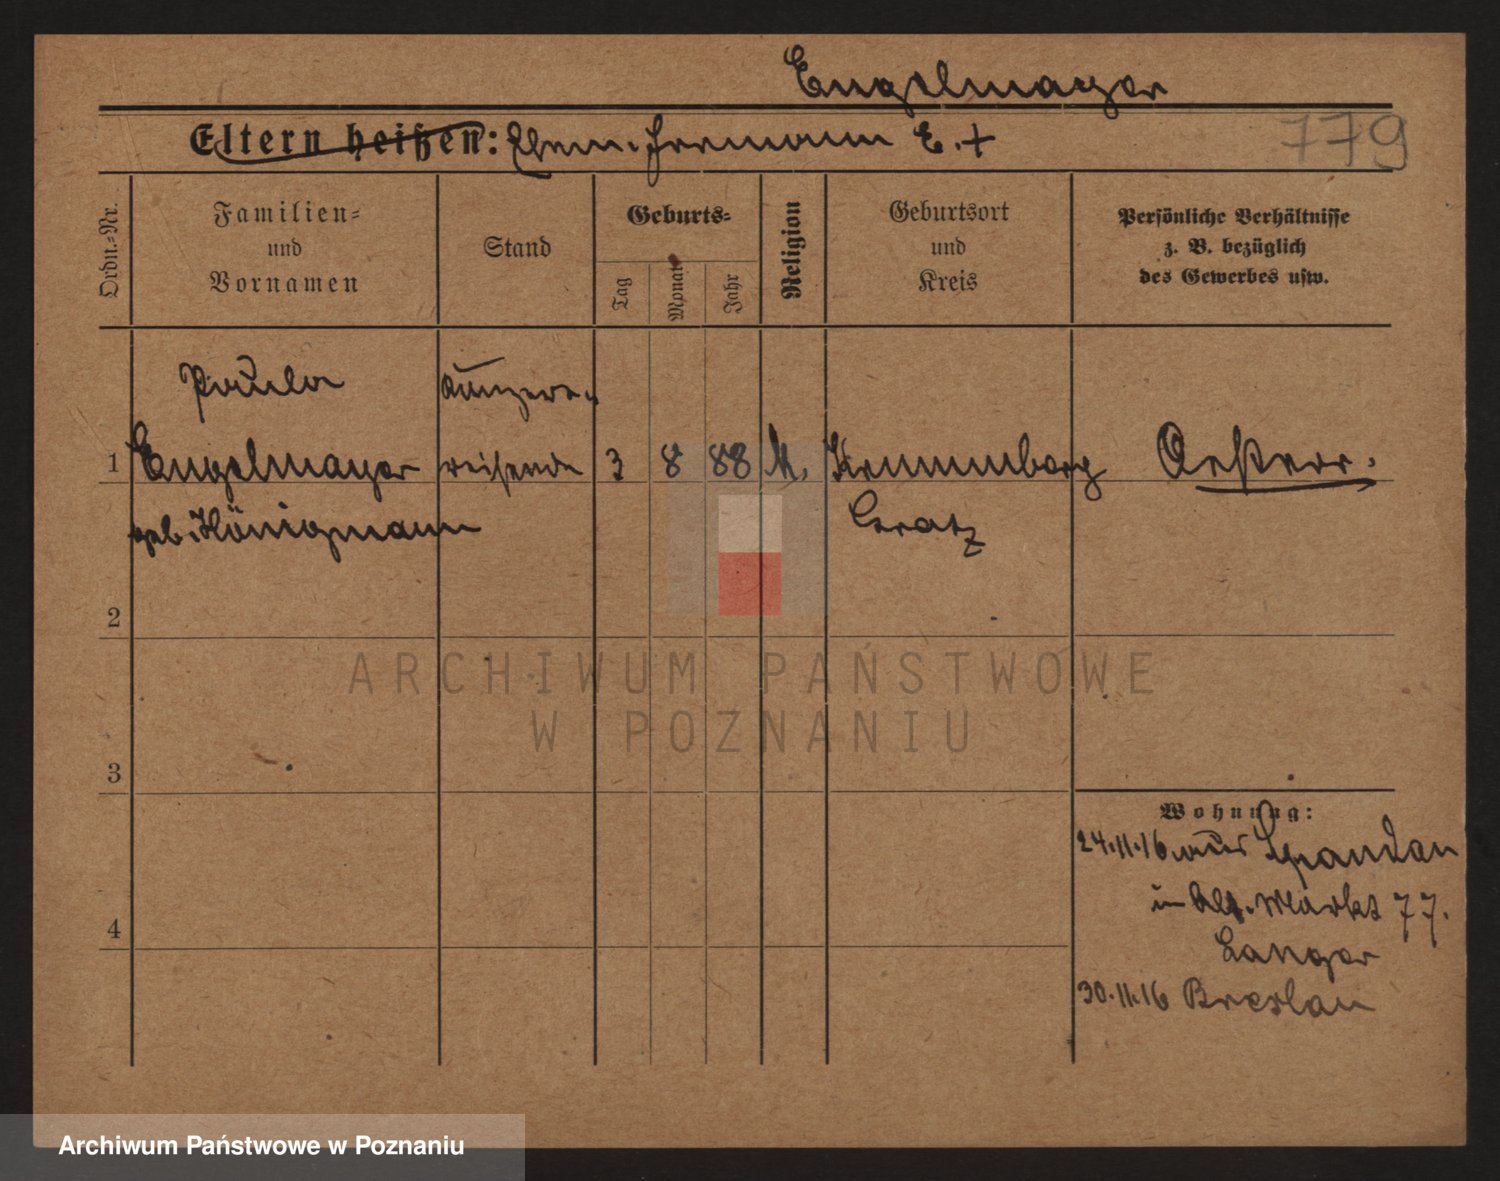 Engelmayer
Eltern heißen: Ehem. Hermann E. +
779
Ordn.-Nr.
Familien-
und
Vornamen
Stand
Geburts-
Tag
Monat
Jahr
Religion
Geburtsort
und
Kreis
Persönliche Verhältnisse
z. B. bezüglich
des Gewerbes usw.
Paula
1 Engelmayer reisende 3 8 88 k. Krummberg Oesterr.
geb. Königmann Gratz
2
3
4
Wohnung:
24.11.16 aus Spandau
in Alt. Markt 77.
Langer
30.11.16 Breslau
ARCHIWUM PAŃSTWOWE
W POZNANIU
Archiwum Państwowe w Poznaniu